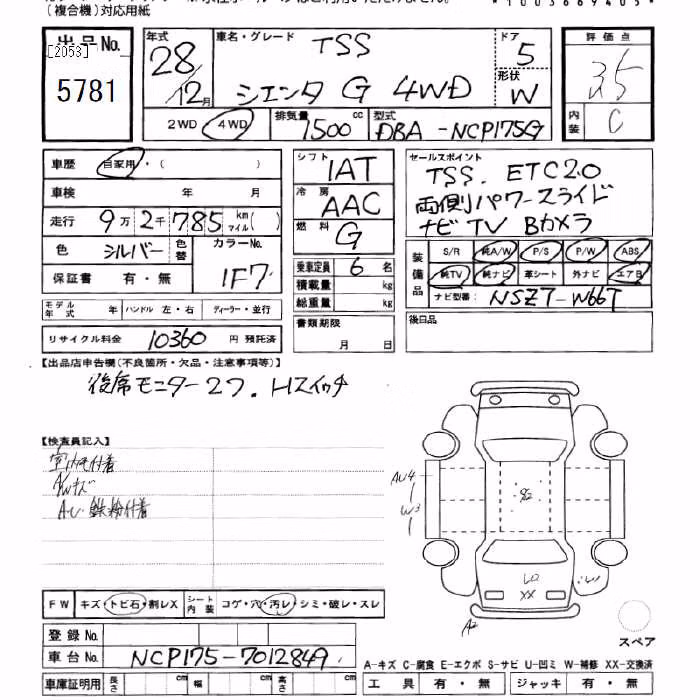 （複合機）対応用紙
*1003669405*
出品No.
[2053]
5781
年式 28/12月
車名・グレード TSS
シエンタ G 4WD
ドア 5
形状 W
評価点
内装 C
2WD 4WD 排気量 1500 cc 型式 DBA-NCP175G
車歴 自家用・（ ）
車検 年 月
走行 9万2千785 km マイル( )
色 シルバー 色替 カラーNo. 1F7
保証書 有・無
モデル年式 年 ハンドル 左・右 ディーラー・並行
リサイクル料金 10360 円 預託済
シフト IAT
冷房 AAC
燃料 G
乗車定員 6 名
積載量 kg
総重量 kg
書類期限
月 日
セールスポイント
TSS. ETC2.0
両側パワースライド
ナビTV Bカメラ
装備品 S/R 純A/W P/S P/W ABS
純TV 純ナビ 革シート 外ナビ エアB
ナビ型番: NSZT-W66T
後日品
【出品店申告欄（不良箇所・欠品・注意事項等）】
後席モニター2ツ. Hスイッチ
【検査員記入】
室内毛付着
AWキズ
A・U・鉄粉付着
AU4
W3
A2
XX
FW キズ・トビ石・割レX シート内装 コゲ・穴・汚レ・シミ・破レ・スレ
登録No.
車台No. NCP175-7012849
車庫証明用 長さ cm 幅 cm 高さ cm
スペア
A-キズ C-腐食 E-エクボ S-サビ U-凹ミ W-補修 XX-交換済
工具 有・無 ジャッキ 有・無